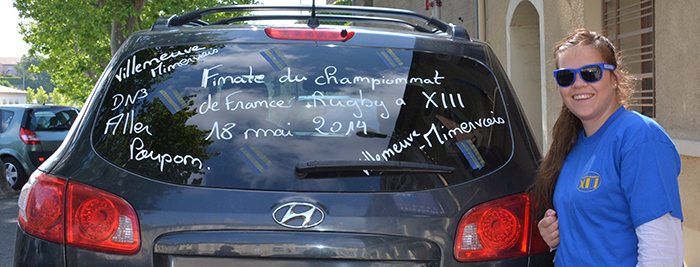 Villemeuve
Mimervois
DN3
Aller
Poupom.
Fimale du championmat
de France Rugby à XIII
18 mai 2014
Villemeuve
-Mimervois